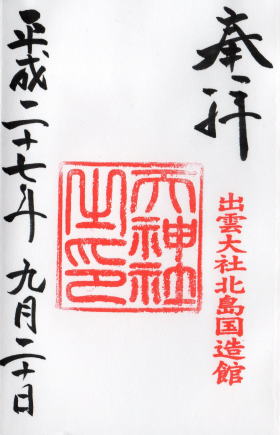 奉拝
出雲大社北島国造館
天神社之印
平成二十七年九月二十日